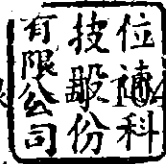 位科
技股份
有限公司